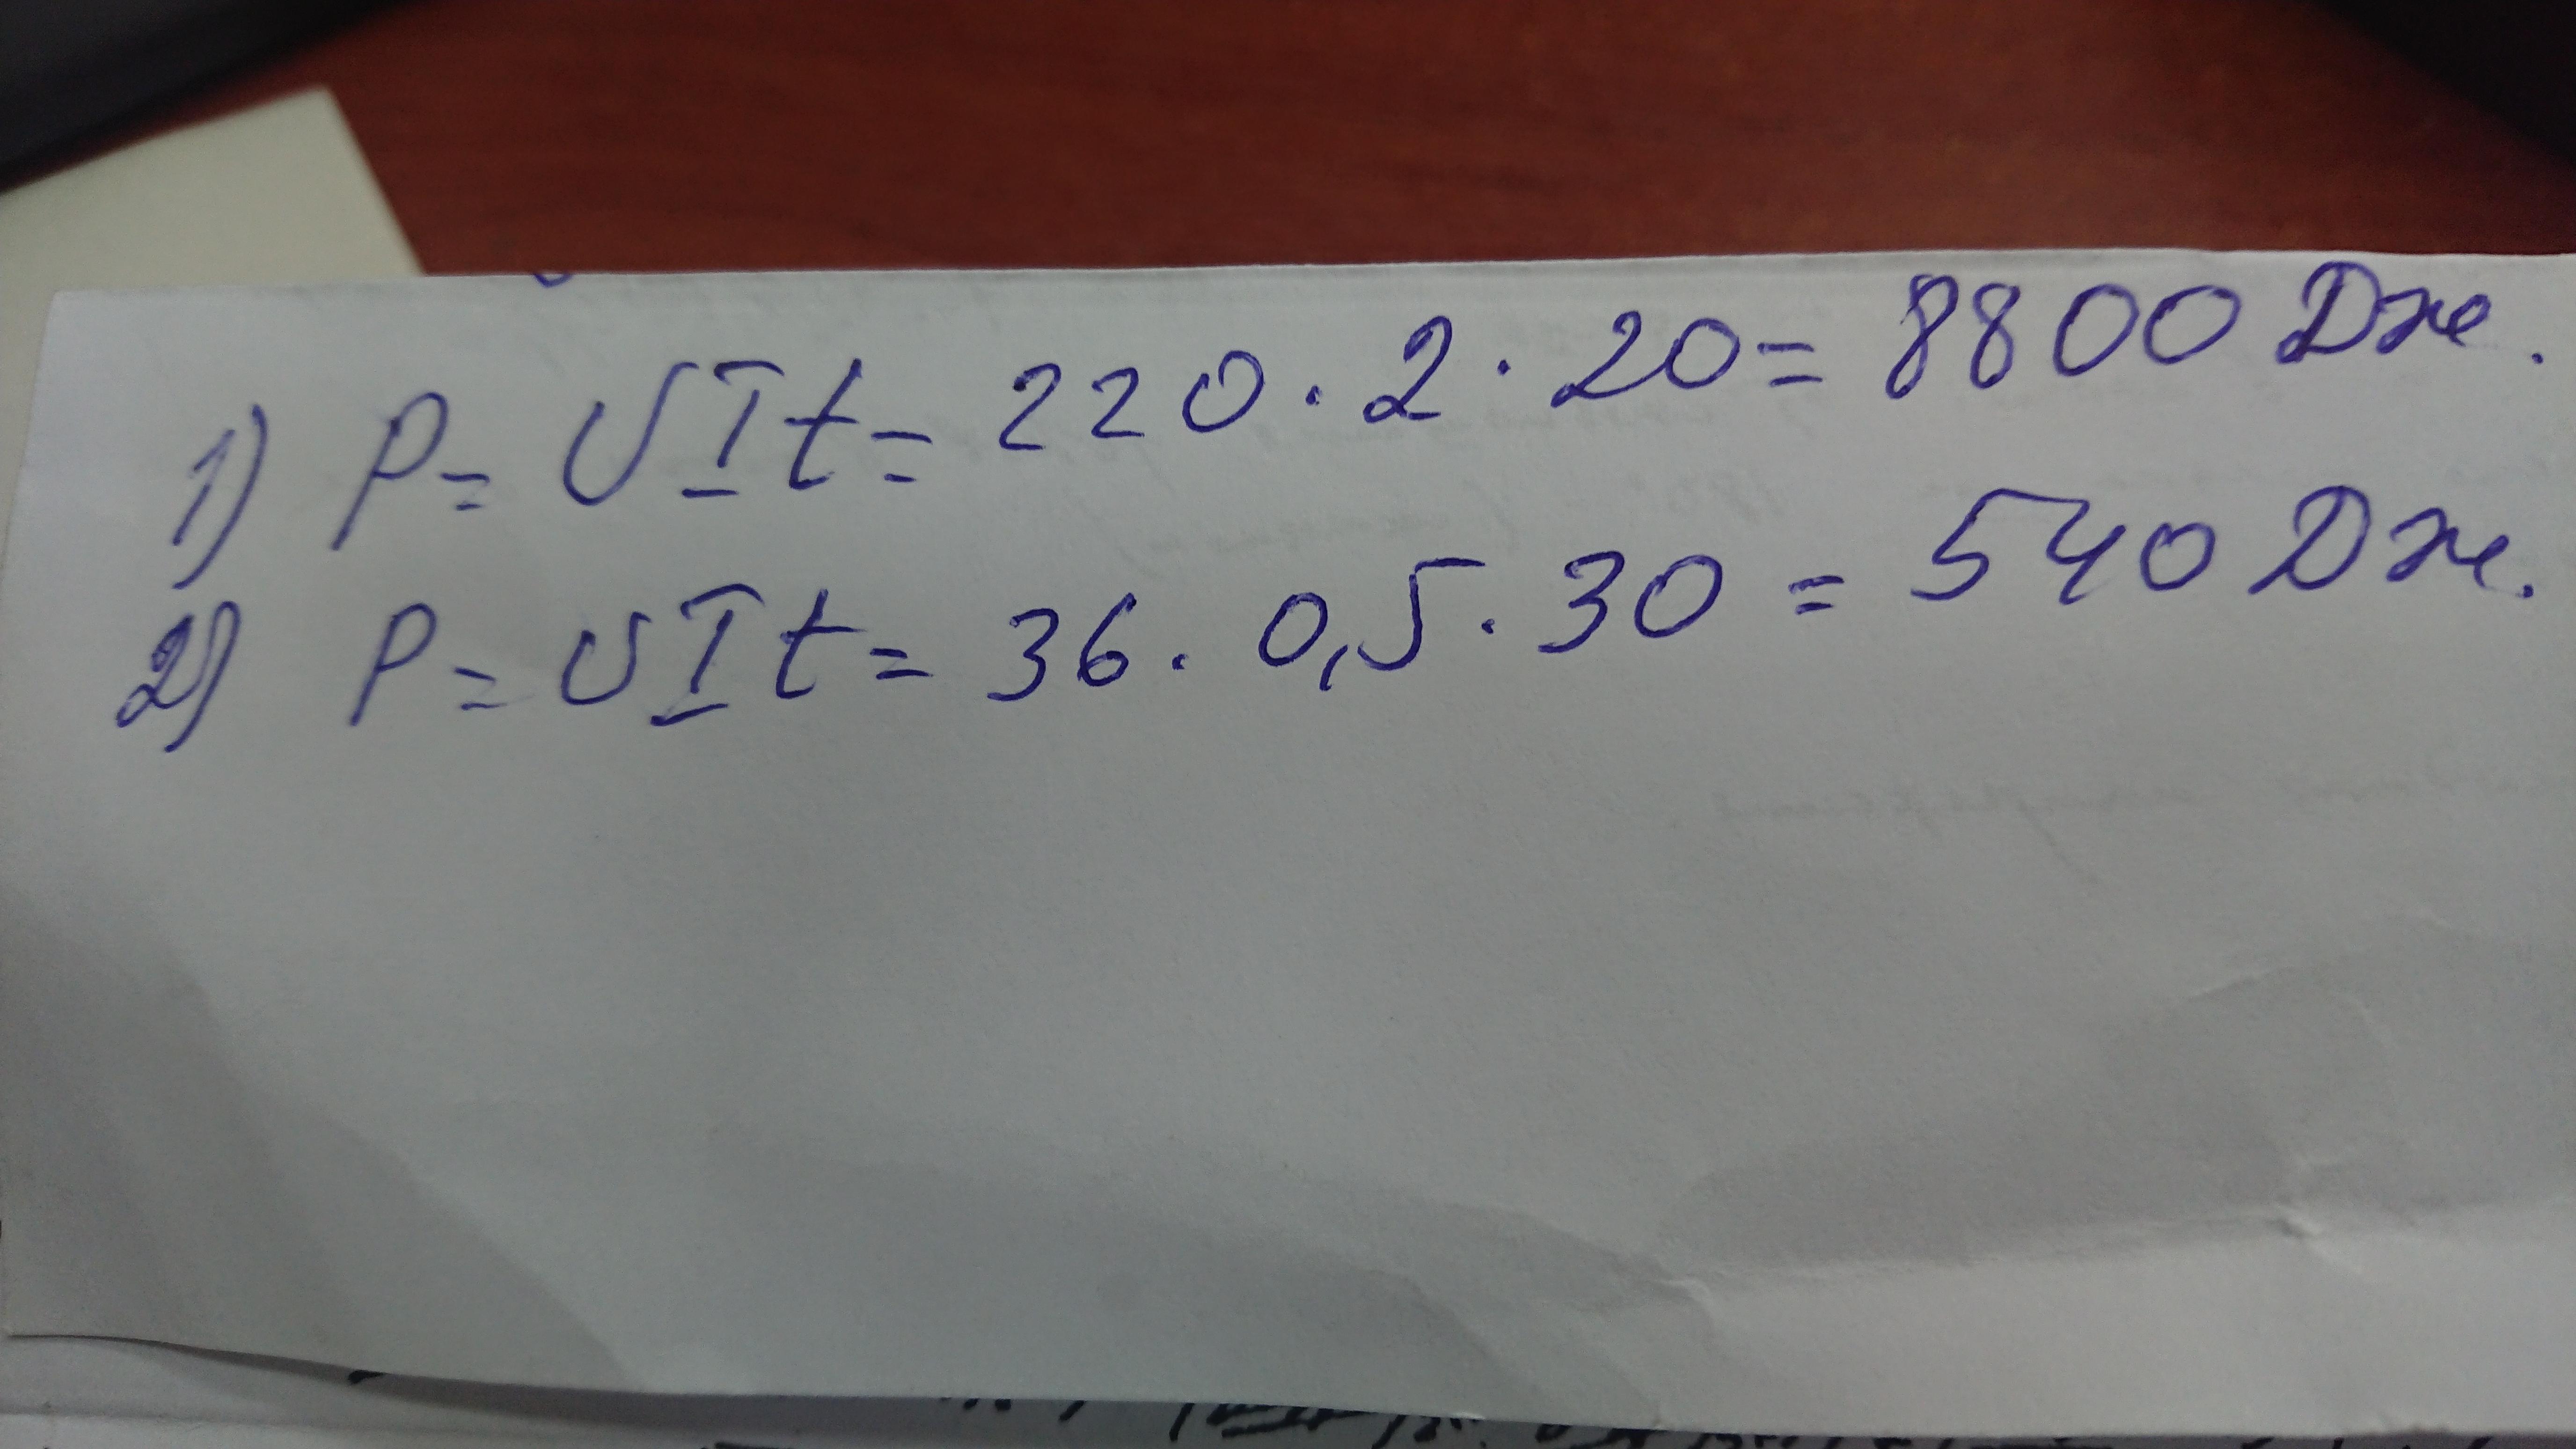 1) P = UIt = 220 · 2 · 20 = 8800 Дж.
2) P = UIt = 36 · 0,5 · 30 = 540 Дж.